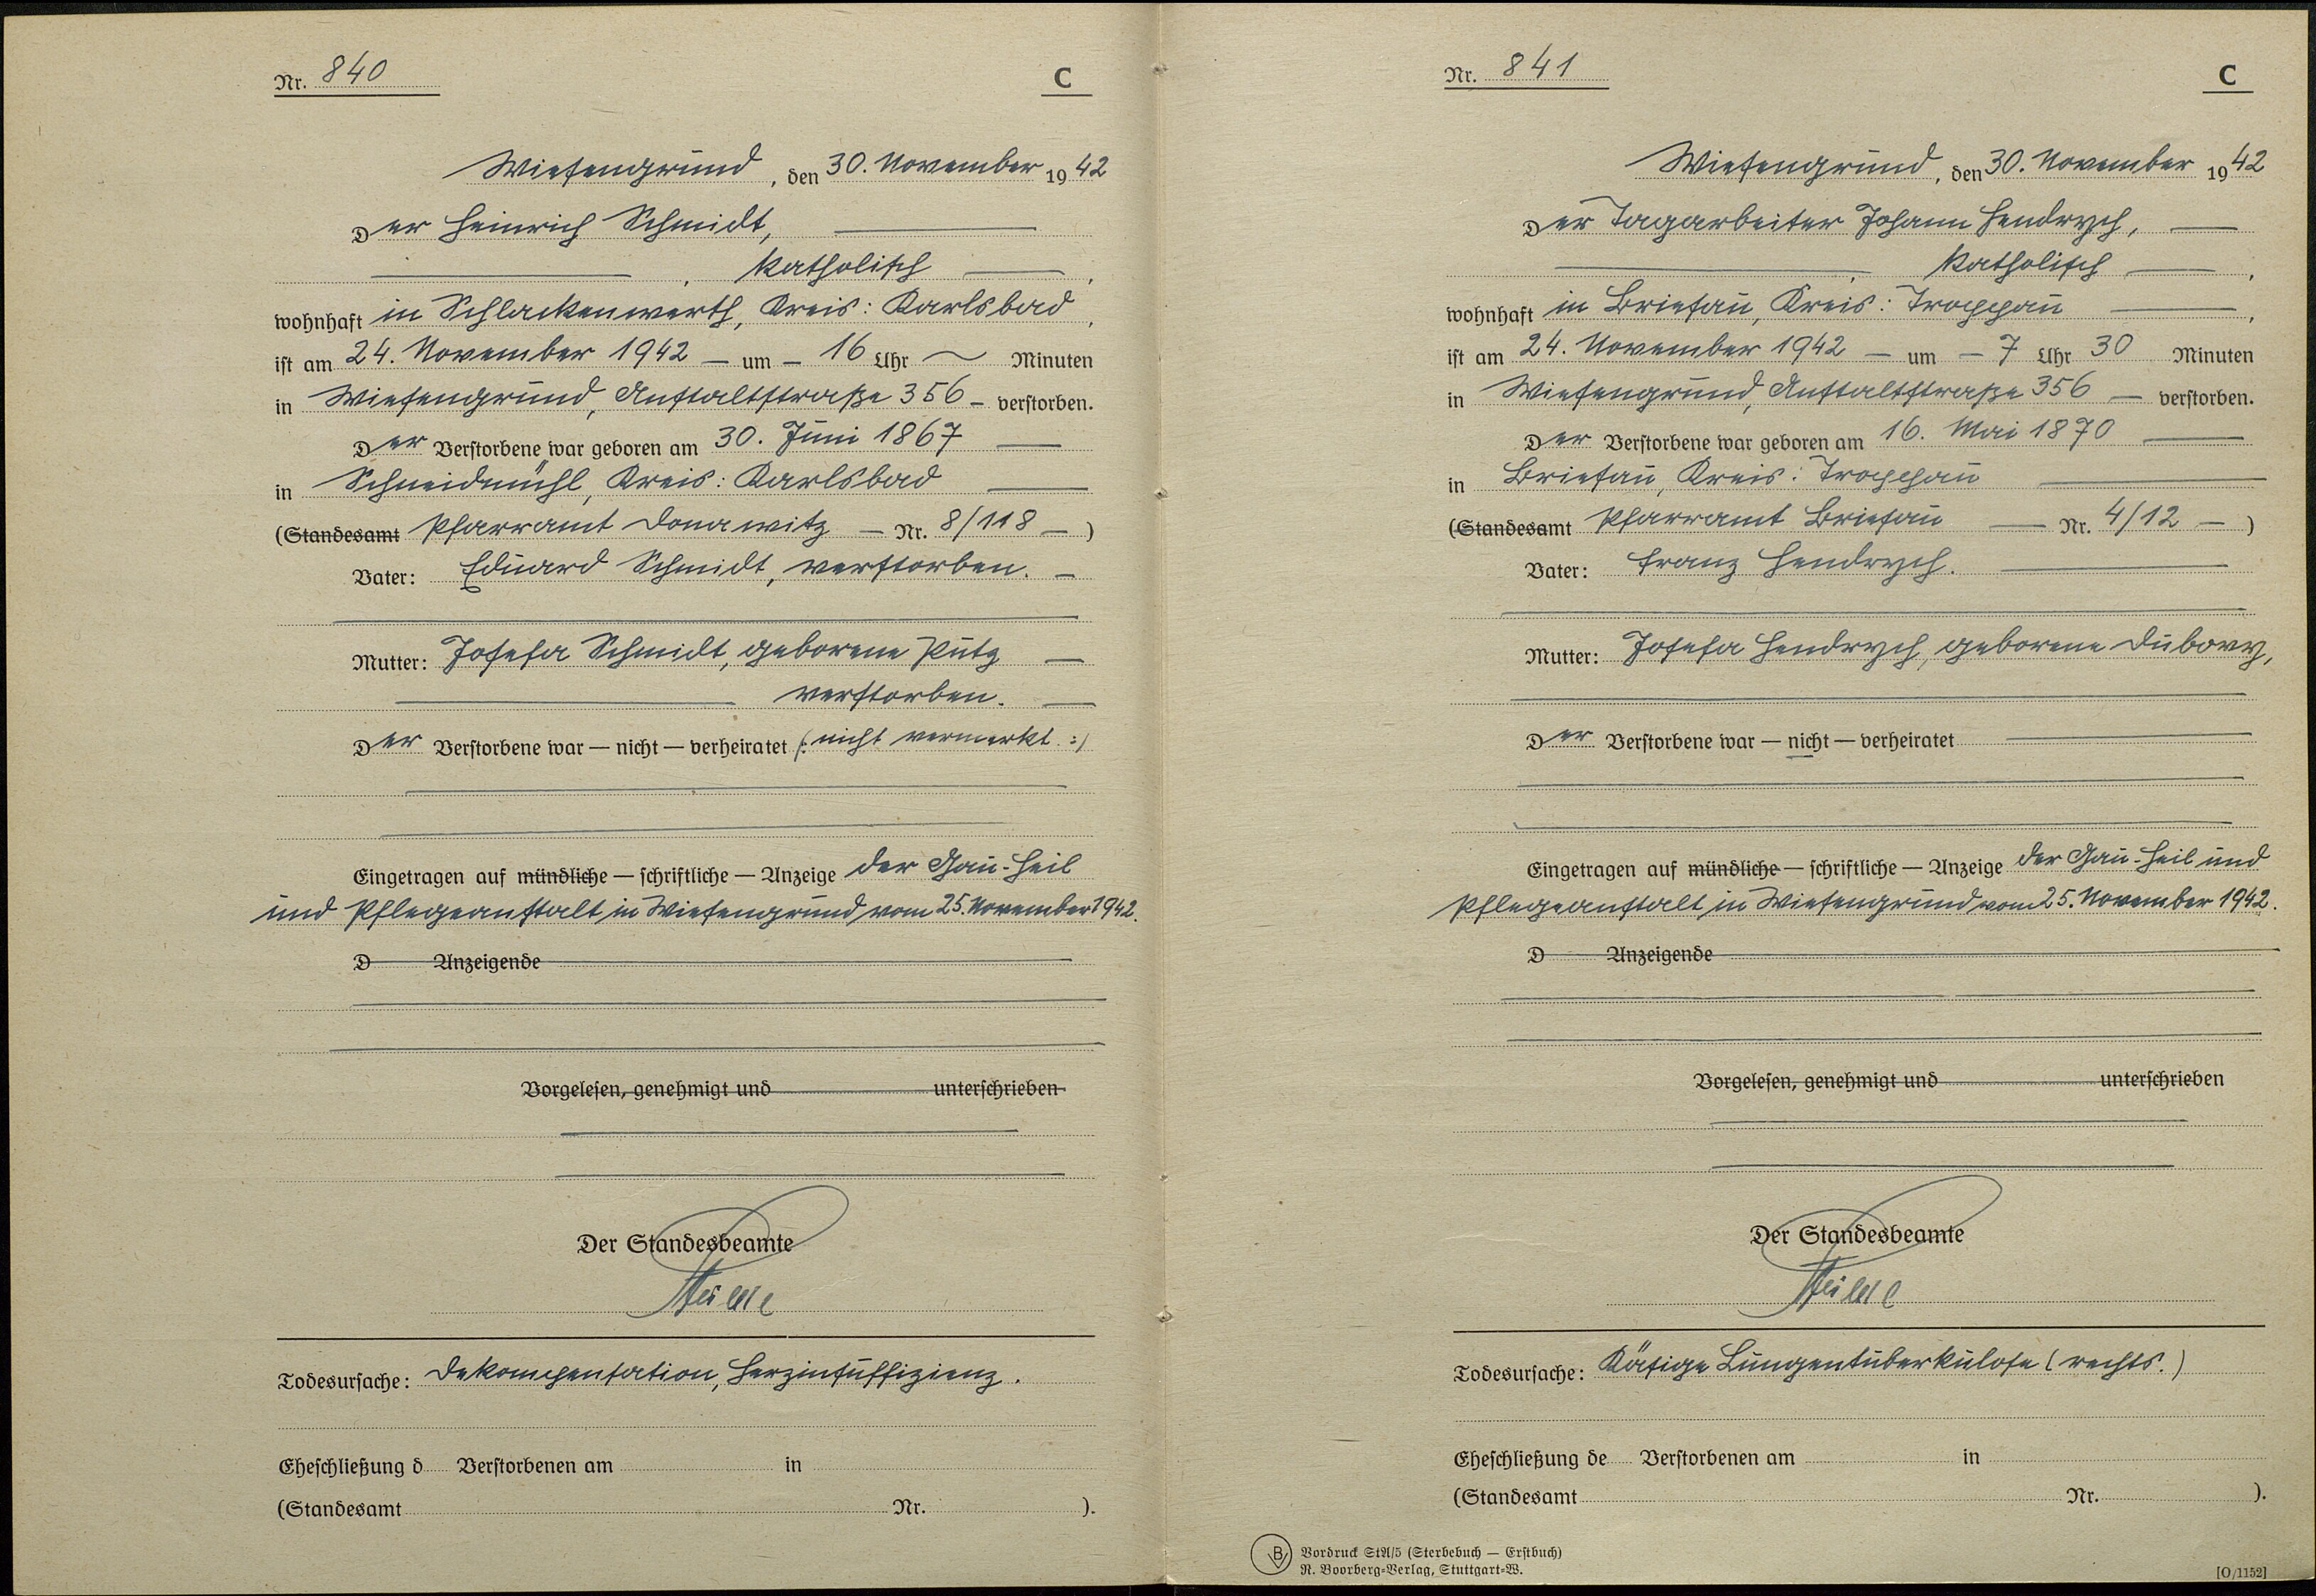 Nr. 840
C
Wiesengrund, den 30. November 1942
Der Heinrich Schmidt,
, katholisch ,
wohnhaft in Schlackenwerth, Kreis: Karlsbad,
ist am 24. November 1942 — um — 16 Uhr ~ Minuten
in Wiesengrund, Anstaltstraße 356 — verstorben.
Der Verstorbene war geboren am 30. Juni 1867
in Schneidmühl, Kreis: Karlsbad
(Standesamt Pfarramt Donawitz — Nr. 8/118 — )
Vater: Eduard Schmidt, verstorben. —
Mutter: Josefa Schmidt, geborene Putz —
verstorben. —
Der Verstorbene war — nicht — verheiratet (: nicht vermerkt. :)
Eingetragen auf mündliche — schriftliche — Anzeige der Gau-Heil
und Pflegeanstalt in Wiesengrund vom 25. November 1942.
D Anzeigende
Vorgelesen, genehmigt und unterschrieben
Der Standesbeamte
Todesursache: Dekompensation, Herzinsuffizienz.
Eheschließung d Verstorbenen am in
(Standesamt Nr. ).
Nr. 841
C
Wiesengrund, den 30. November 1942
Der Tagarbeiter Johann Hendrych, —
, katholisch — ,
wohnhaft in Briesau, Kreis: Troppau — ,
ist am 24. November 1942 — um — 7 Uhr 30 Minuten
in Wiesengrund, Anstaltstraße 356 — verstorben.
Der Verstorbene war geboren am 16. Mai 1870 —
in Briesau, Kreis: Troppau —
(Standesamt Pfarramt Briesau — Nr. 4/12 — )
Vater: Franz Hendrych. —
Mutter: Josefa Hendrych, geborene Dubovy,
Der Verstorbene war — nicht — verheiratet
Eingetragen auf mündliche — schriftliche — Anzeige der Gau-Heil und
Pflegeanstalt in Wiesengrund vom 25. November 1942.
D Anzeigende
Vorgelesen, genehmigt und unterschrieben
Der Standesbeamte
Todesursache: Käsige Lungentuberkulose (rechts.)
Eheschließung de Verstorbenen am in
(Standesamt Nr. ).
B Vordruck StA/5 (Sterbebuch — Erstbuch)
R. Boorberg-Verlag, Stuttgart-W.
[O/1152]